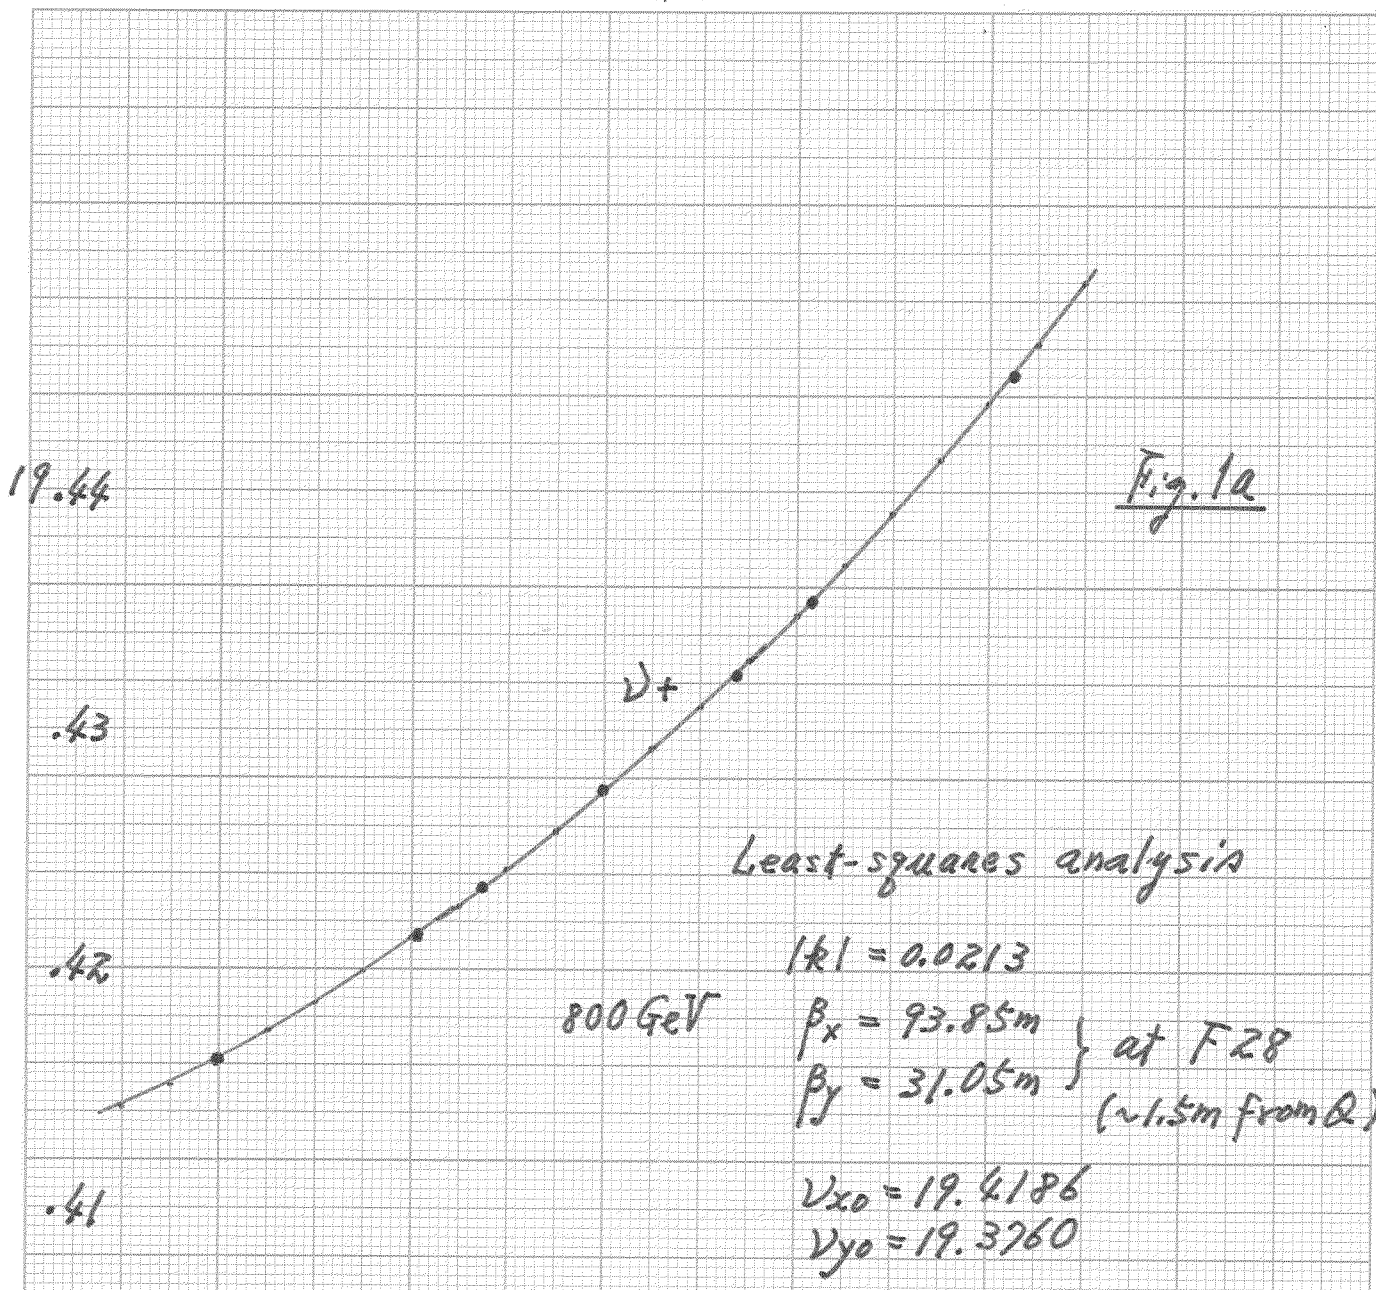 19.44
Fig. 1a
ν+
.43
Least-squares analysis
.42
|k| = 0.0213
800 GeV
βx = 93.85m
βy = 31.05m } at F28
(~1.5m from Q)
.41
νxo = 19.4186
νyo = 19.3760